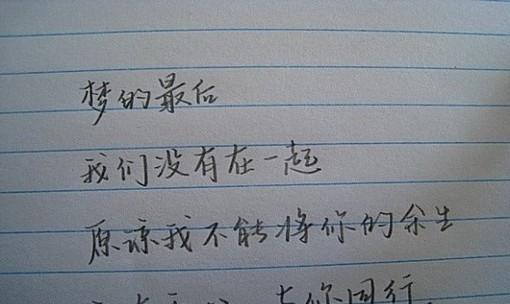 梦的最后
我们没有在一起
原谅我不能将你的余生
你同行